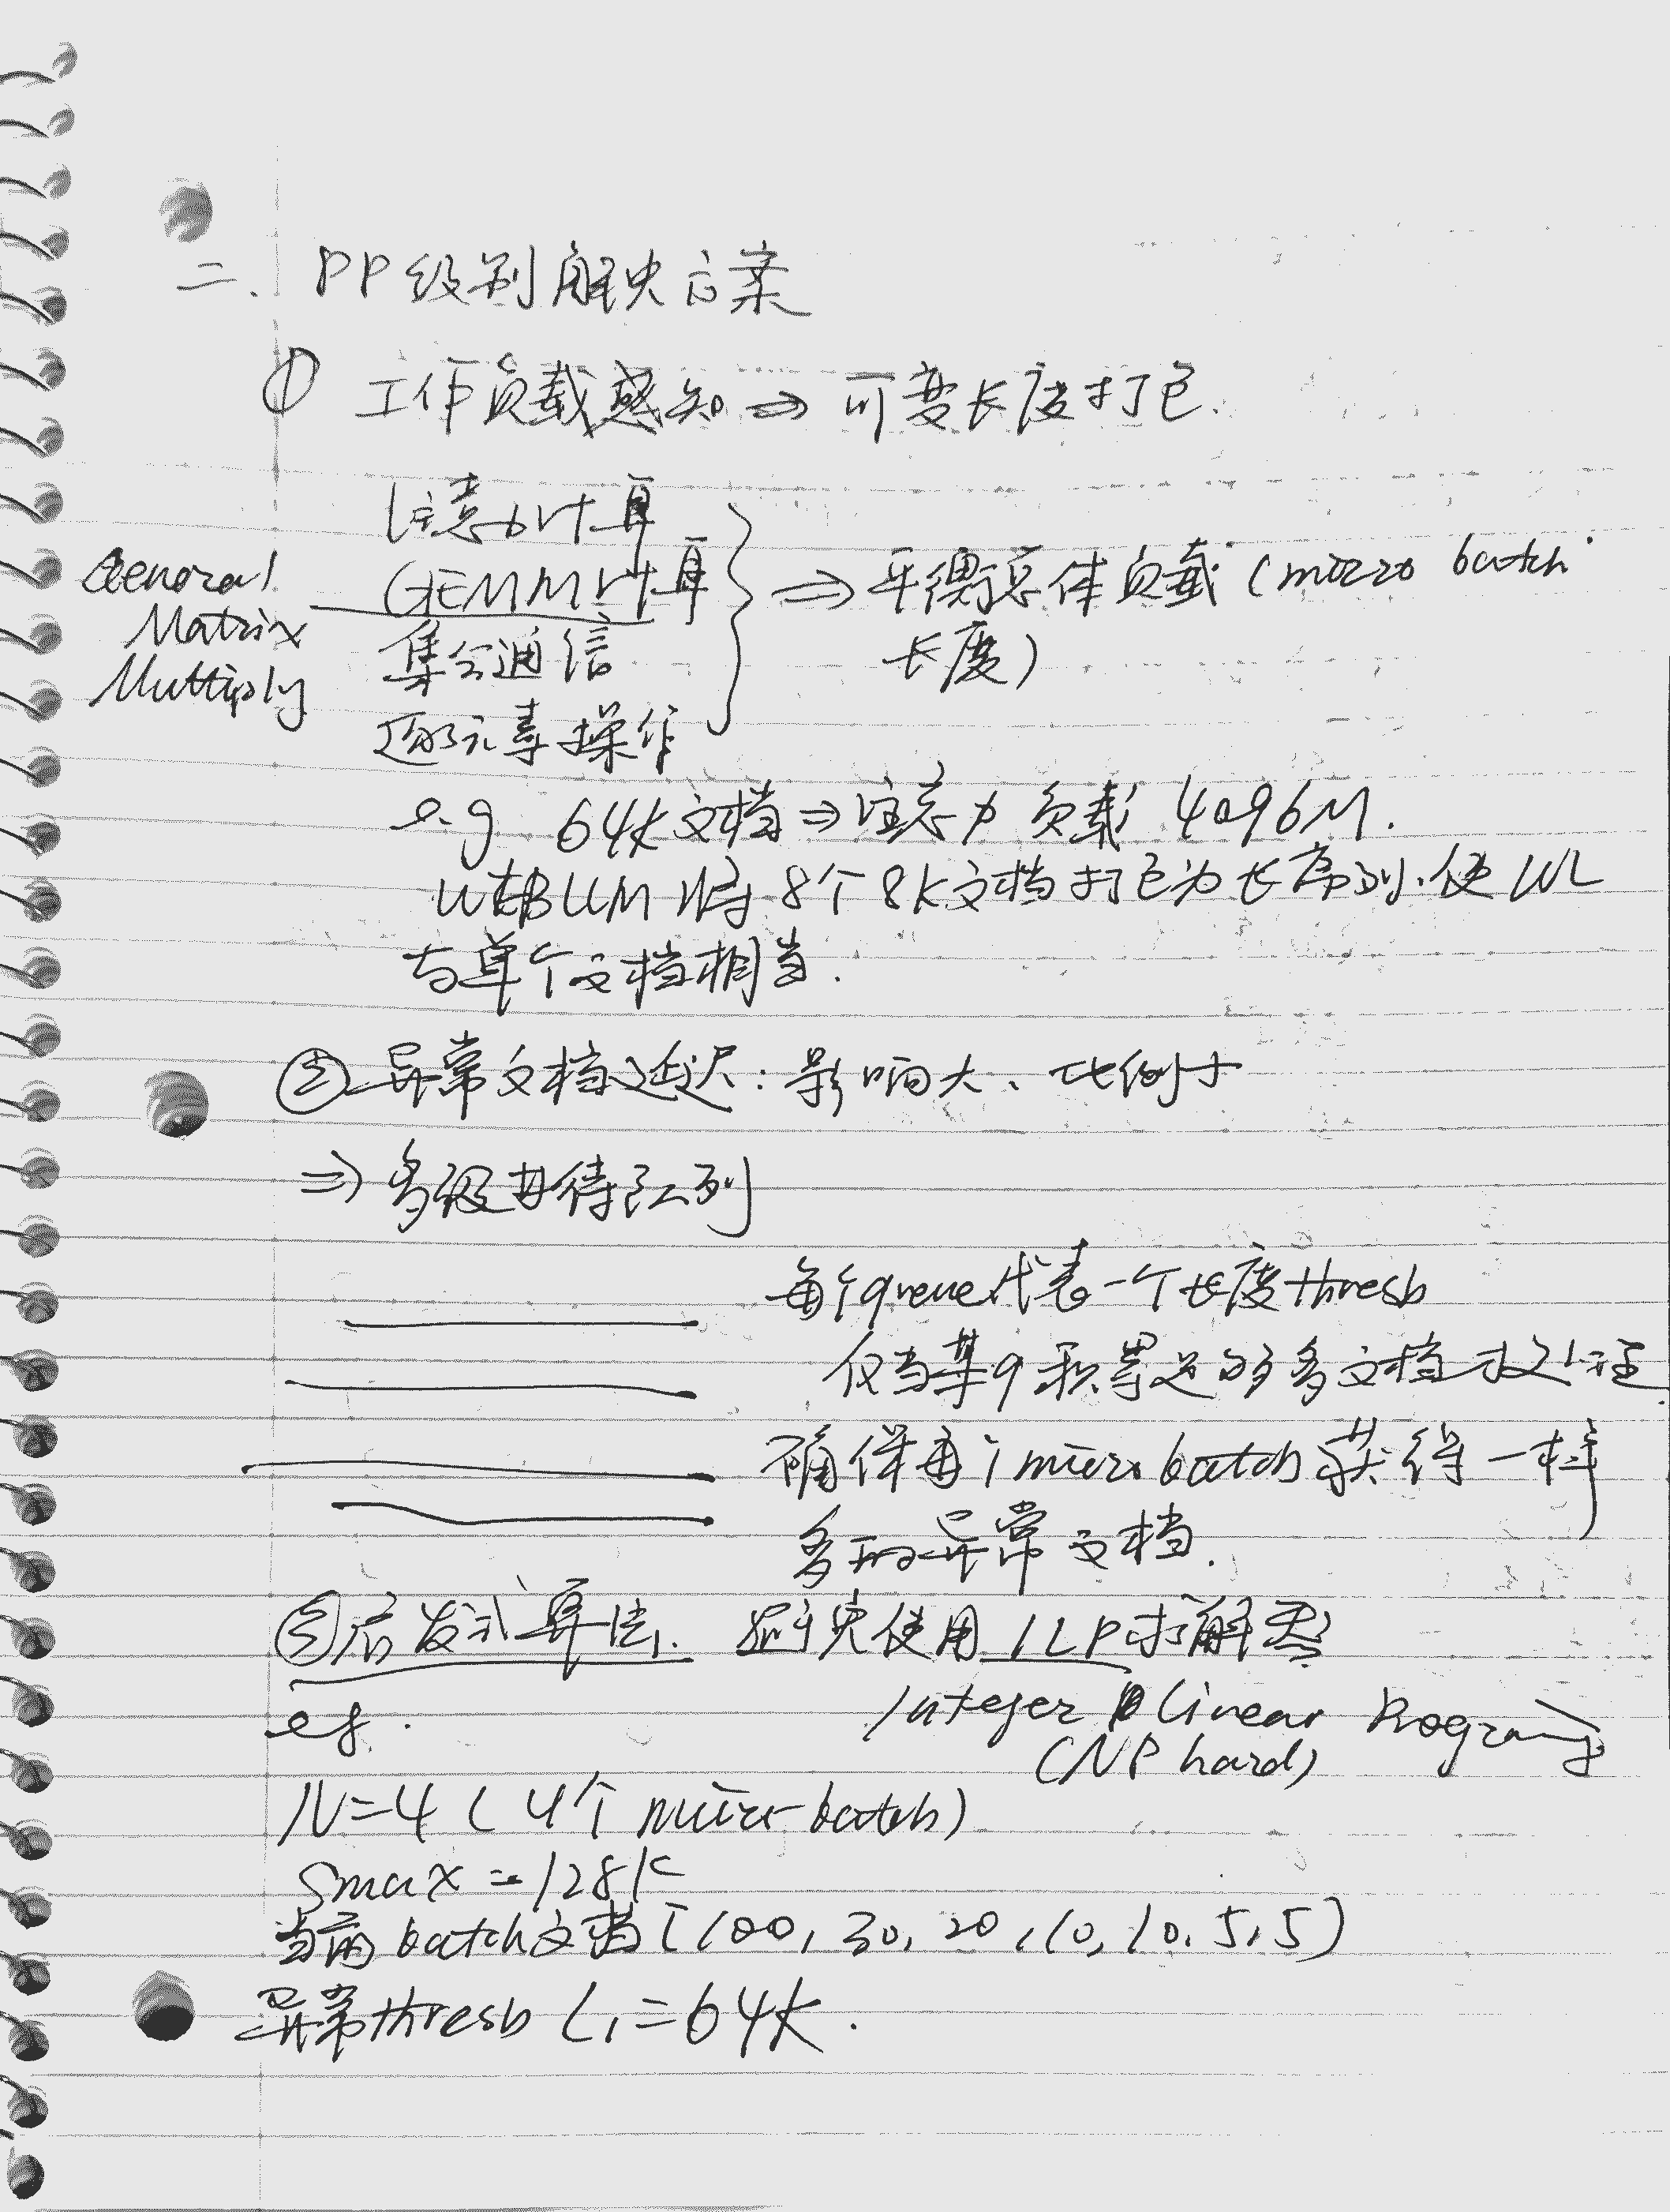 二、PP级别解决方案
① 工作负载感知 ⇒ 可变长度打包.
注意力计算
GEMM计算
General
Matrix
Multiply
集合通信
逐元素操作
⇒ 平衡总体负载 (micro batch
长度)
e.g 64K文档 ⇒ 注意力负载 4096M.
WLBLLM 将 8个 8K文档打包为长序列,使WL
与单个文档相当.
② 异常文档延迟: 影响大、比例小
⇒ 多级等待队列
每个queue代表一个长度thresh
仅当某q积累足够多文档才处理
确保每个micro batch获得一样
多的异常文档.
③启发式算法. 避免使用ILP求解器
Integer Linear Programming
(NP hard)
eg.
N=4 (4个 micro-batch)
Smax = 128K
当前batch文档 [100, 30, 20, 10, 10, 5, 5]
异常thresh L1=64K.